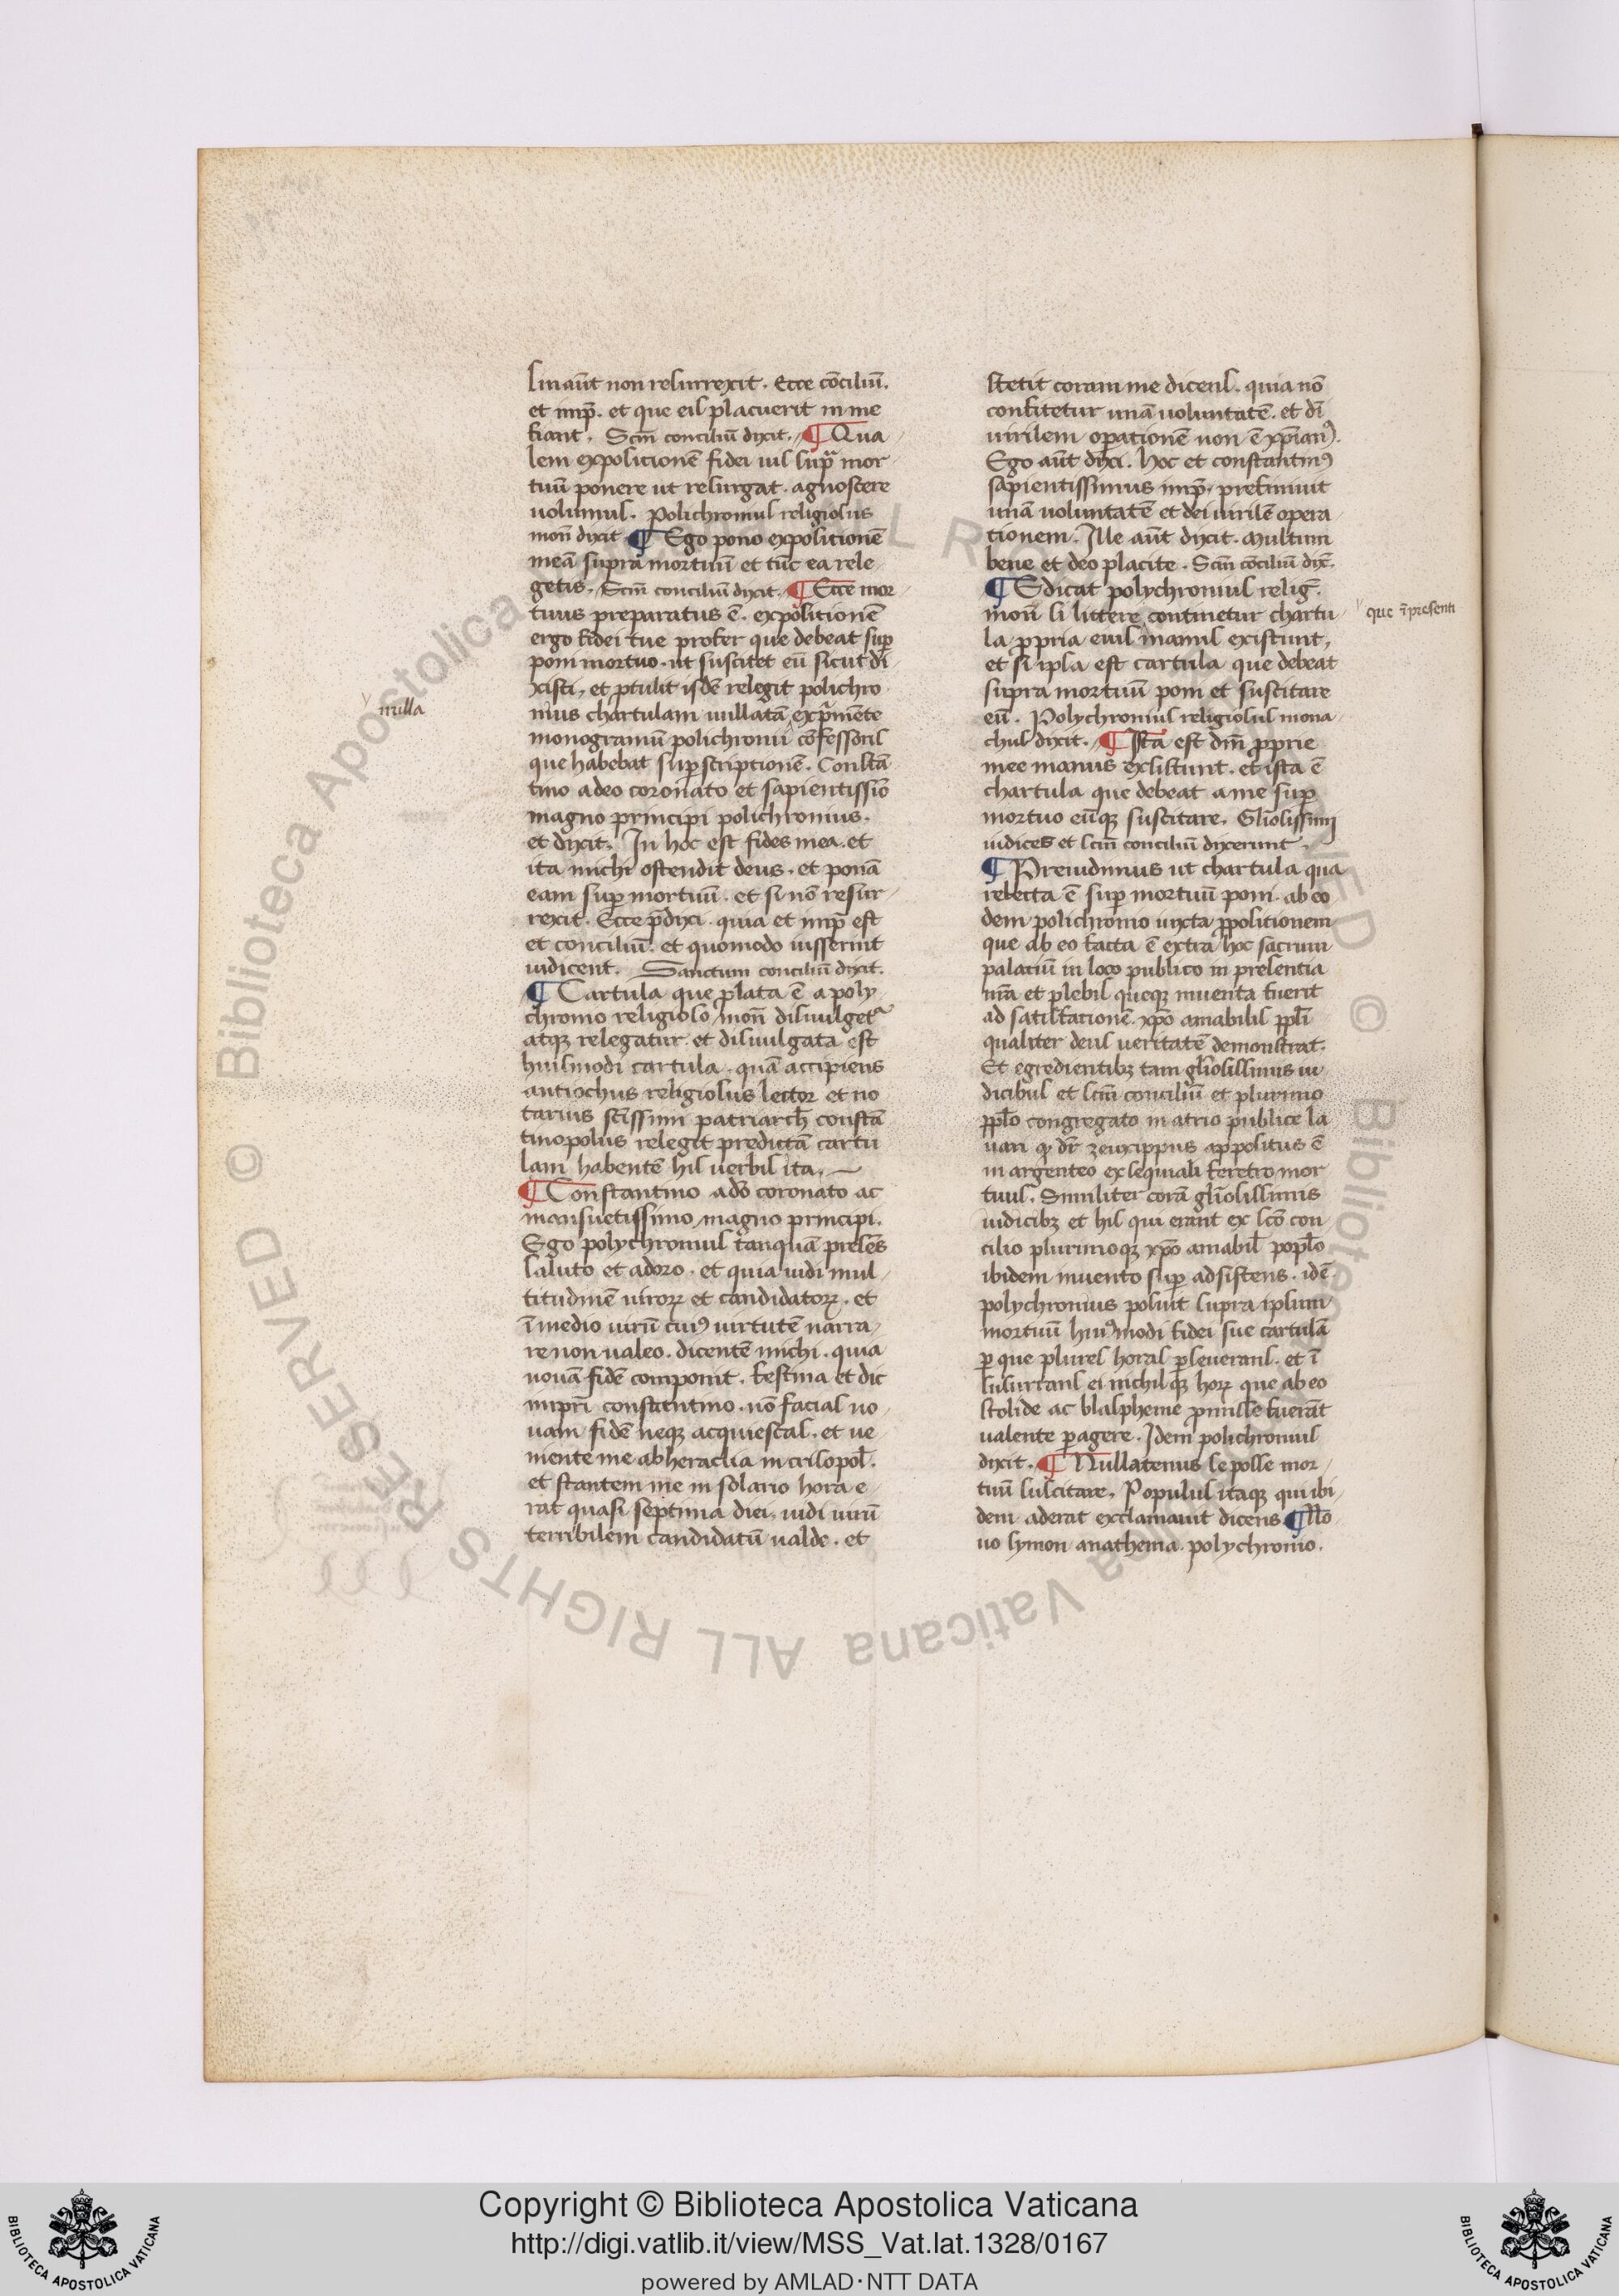 sin aūt non resurrexit. Ecce cōciliū.
et imp̄. et que eis placuerit in me
fiant. Scm̄ conciliū dixit. ¶ Qua
lem expositionē fidei uis supra mor
tuū ponere ut resurgat. agnoscere
uolumus. Polichronius religiosus
mon̄ dixit ¶ Ego pono expositionē
meā supra mortuū et tūc ea rele
getis. Scm̄ conciliū dixit. ¶ Ecce mor
tuus preparatus ē. expositionē
ergo fidei tue profer que debeat sup̄
poni mortuo. ut suscitet eū sicut di
xisti. et ꝓtulit isdē relegit polichro
nius chartulam uullatā exprimēte
monogramū polichronii cōfessoris
que habebat suꝑscriptionē. Constā
tino a deo coronato et sapientissīo
magno principi polichronius.
et dixit. In hoc est fides mea. et
ita michi ostendit deus. et ponā
eam suꝑ mortuū. et si nō resur
rexit. Ecce p̄dixi. quia et imp̄ est
et conciliū. et quomodo iusserint
iudicent. Sanctum conciliū dixit.
¶ Cartula que ꝓlata ē a poly
chronio religioso mon̄ disuulgetᵘʳ
atqꝫ relegatur. et disuulgata est
huiusmodi cartula. quā accipiens
antiochus religiosus lector et no
tarius sc̄issimi patriarch̄ constā
tinopolus relegit predictā cartu
lam habentē his uerbis ita.
¶ Constantino a dō coronato ac
mansuetissimo magno principi.
Ego polychronius tanquā presēs
saluto et adoro. et quia uidi mul
titudinē uiroꝝ et candidatoꝝ. et
ī medio uirū cuiꝰ uirtutē narra
re non ualeo. dicentē michi. quia
nouā fidē componit. festina et dic
impr̄i constantino. nō facias no
uam fidē neqꝫ acquiescas. et ue
niente me ab heraclia in crisopol̄.
et stantem me in solario hora e
rat quasi septima diei. uidi uirū
terribilem candidatū ualde. et
nulla
stetit coram me dicens. quia nō
confitetur unā uoluntatē. et dī
uirilem oꝑationē non ē xp̄ianꝰ.
Ego aūt dixi. hoc et constantinꝰ
sapientissimus imp̄. prefiniuit
unā uoluntatē et dei uirilē opera
tionem. Ille aūt dixit. Multum
bene et deo placite. Scm̄ cōciliū dix̄.
¶ Edicat polychronius reliḡ.
mon̄ si littere continetur chartu
la ꝓpria eius manus existunt.
et si ipsa est cartula que debeat
supra mortuū poni et suscitare
eū. Polychronius religiosus mona
chus dixit. ¶ Ista est dm̄ ꝓprie
mee manus existunt. et ista ē
chartula que debeat a me suꝑ
mortuo eūqꝫ suscitare. Gl̄iosissimi
iudices et scm̄ conciliū dixerunt.
¶ Preuidimus ut chartula qua
relecta ē suꝑ mortuū poni ab eo
dem polichronio iuxta ꝓpositionem
que ab eo facta ē extra hoc sacrum
palatiū in loco publico in presentia
nr̄a et plebis queqꝫ inuenta fuerit
ad satisfationē xp̄o amabilis ppl̄i
qualiter deus ueritatē demonstrat.
Et egredientibꝫ tam gl̄iosissimis iu
dicibus et scm̄ conciliū et plurimo
ppl̄o congregato in atrio publice la
uari qđ dr̄ zeuxippus appositus ē
in argenteo exsequiali feretro mor
tuus. Similiter corā gl̄iosissimis
iudicibꝫ et his qui erant ex scō con
cilio plurimoqꝫ xp̄o amabil̄ popl̄o
ibidem inuento suꝑ adsistens. idē
polychronius posuit supra ipsum
mortuū huiꝰmodi fidei sue cartulā
ꝑ que plures horas ꝑseuerans. et ī
susurrans ei nichilqꝫ hoꝝ que ab eo
stolide ac blaspheme ꝓmisse fuerāt
ualente ꝑagere. Idem polichronius
dixit. ¶ Nullatenus se posse mor
tuū suscitare. Populus itaqꝫ qui ibi
dem aderat exclamauit dicens ¶ No
uo symon anathema. polychronio.
que ī presenti
Copyright © Biblioteca Apostolica Vaticana
http://digi.vatlib.it/view/MSS_Vat.lat.1328/0167
powered by AMLAD·NTT DATA
BIBLIOTECA APOSTOLICA VATICANA
BIBLIOTECA APOSTOLICA VATICANA
© Biblioteca Apostolica Vaticana ALL RIGHTS RESERVED